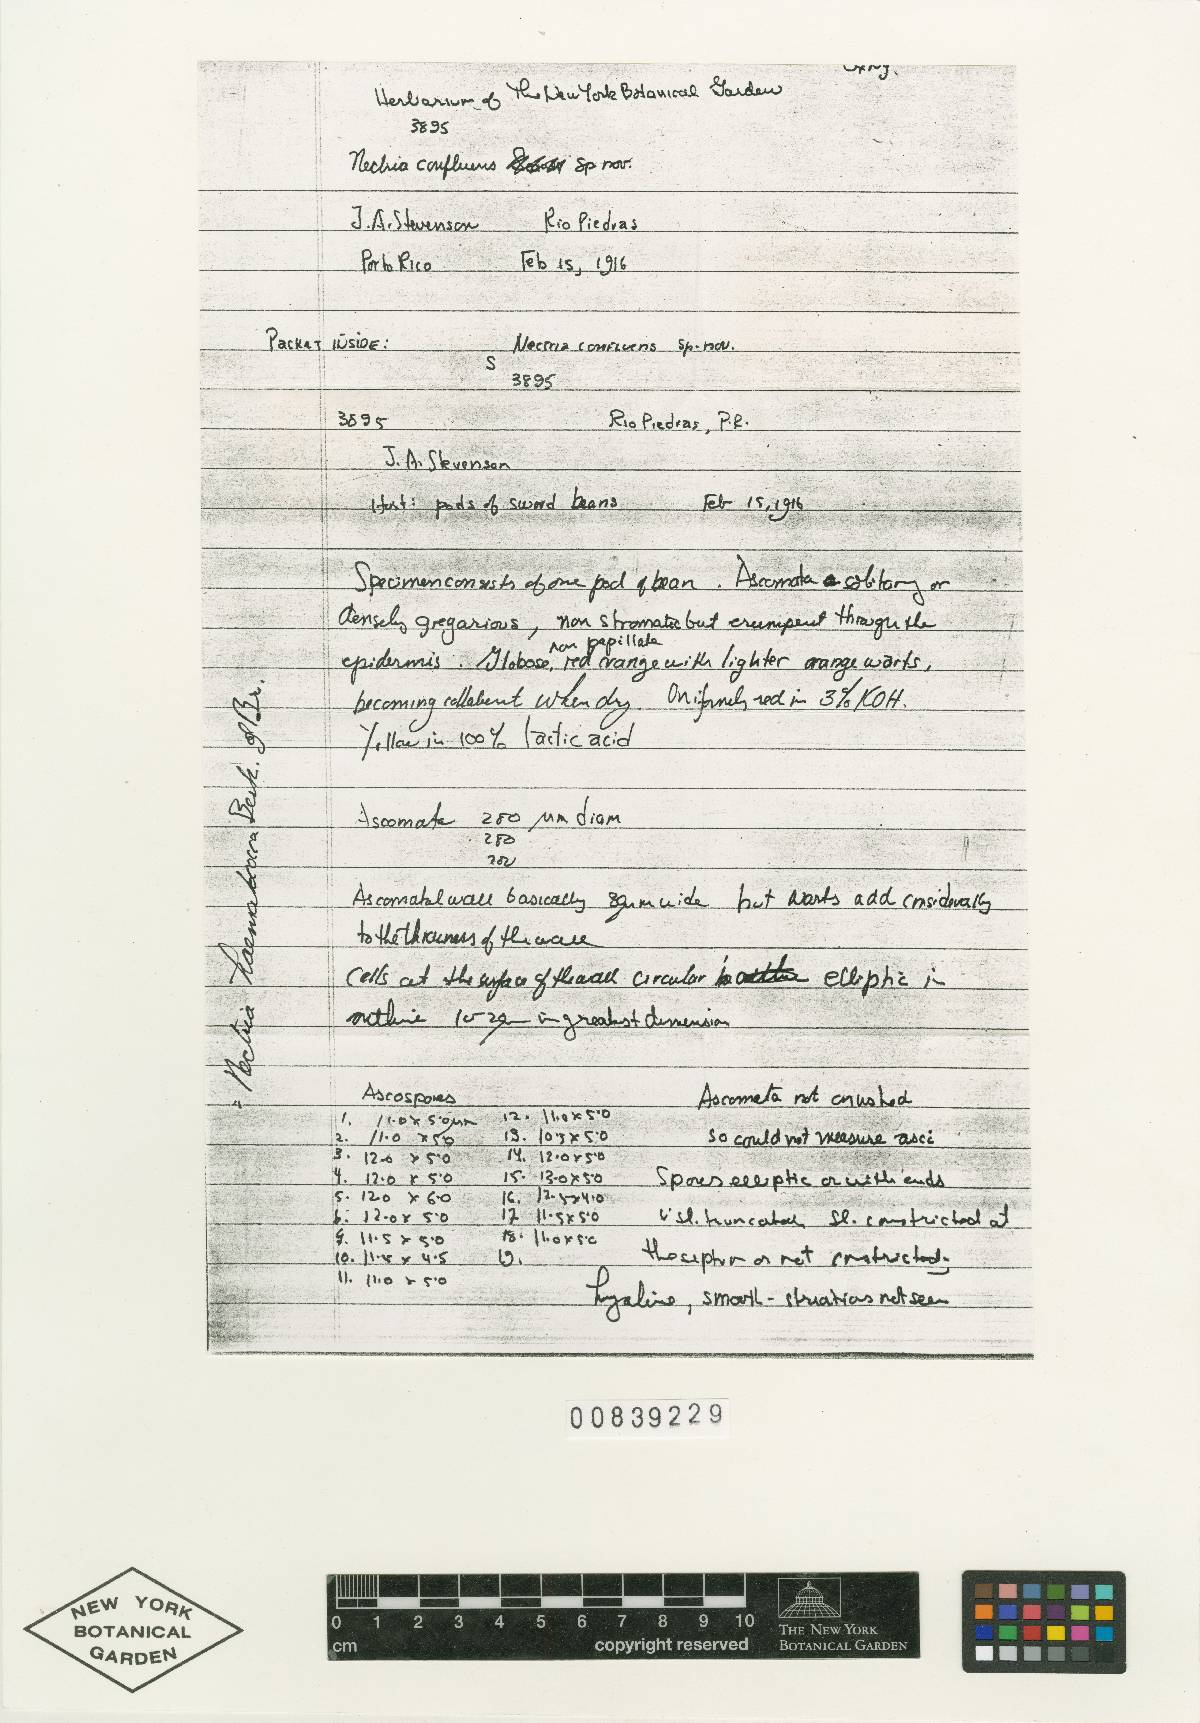 Herbarium of The New York Botanical Garden
3895
Nectria confluens sp nov.
J.A. Stevenson Rio Piedras
Porto Rico Feb 15, 1916
Packet inside: Nectria confluens sp. nov.
S
3895
3895 Rio Piedras, P.R.
J. A. Stevenson
Host: pods of sword beans Feb 15, 1916
Specimen consists of one pod of bean. Ascomata solitary or
densely gregarious, non stromatic but erumpent through the
non papillate
epidermis. Globose, red orange with lighter orange warts,
becoming collabent when dry. Uniformly red in 3% KOH.
Yellow in 100% lactic acid
= Nectria haematococca Berk. & Br.
Ascomata 280 µm diam
280
Ascomatal wall basically wide but warts add considerably
to the thickness of the wall
Cells at the surface of the wall circular elliptic in
outline in greatest dimension
Ascospores Ascomata not crushed
1. 11.0 x 5.0 µm 12. 11.0 x 5.0
2. 11.0 x 5.0 13. 10.5 x 5.0 so could not measure asci
3. 12.0 x 5.0 14. 12.0 x 5.0
4. 12.0 x 5.0 15. 13.0 x 5.0 Spores elliptic or with ends
5. 12.0 x 6.0 16. 12.5 x 4.0
6. 12.0 x 5.0 17. 11.5 x 5.0 v. sl. truncated, sl. constricted at
9. 11.5 x 5.0 18. 11.0 x 5.0
10. 11.5 x 4.5 19. the septum or not constricted,
11. 11.0 x 5.0
hyaline, smooth - striations not seen
00839229
NEW YORK
BOTANICAL
GARDEN
0 1 2 3 4 5 6 7 8 9 10
cm copyright reserved
THE NEW YORK
BOTANICAL GARDEN